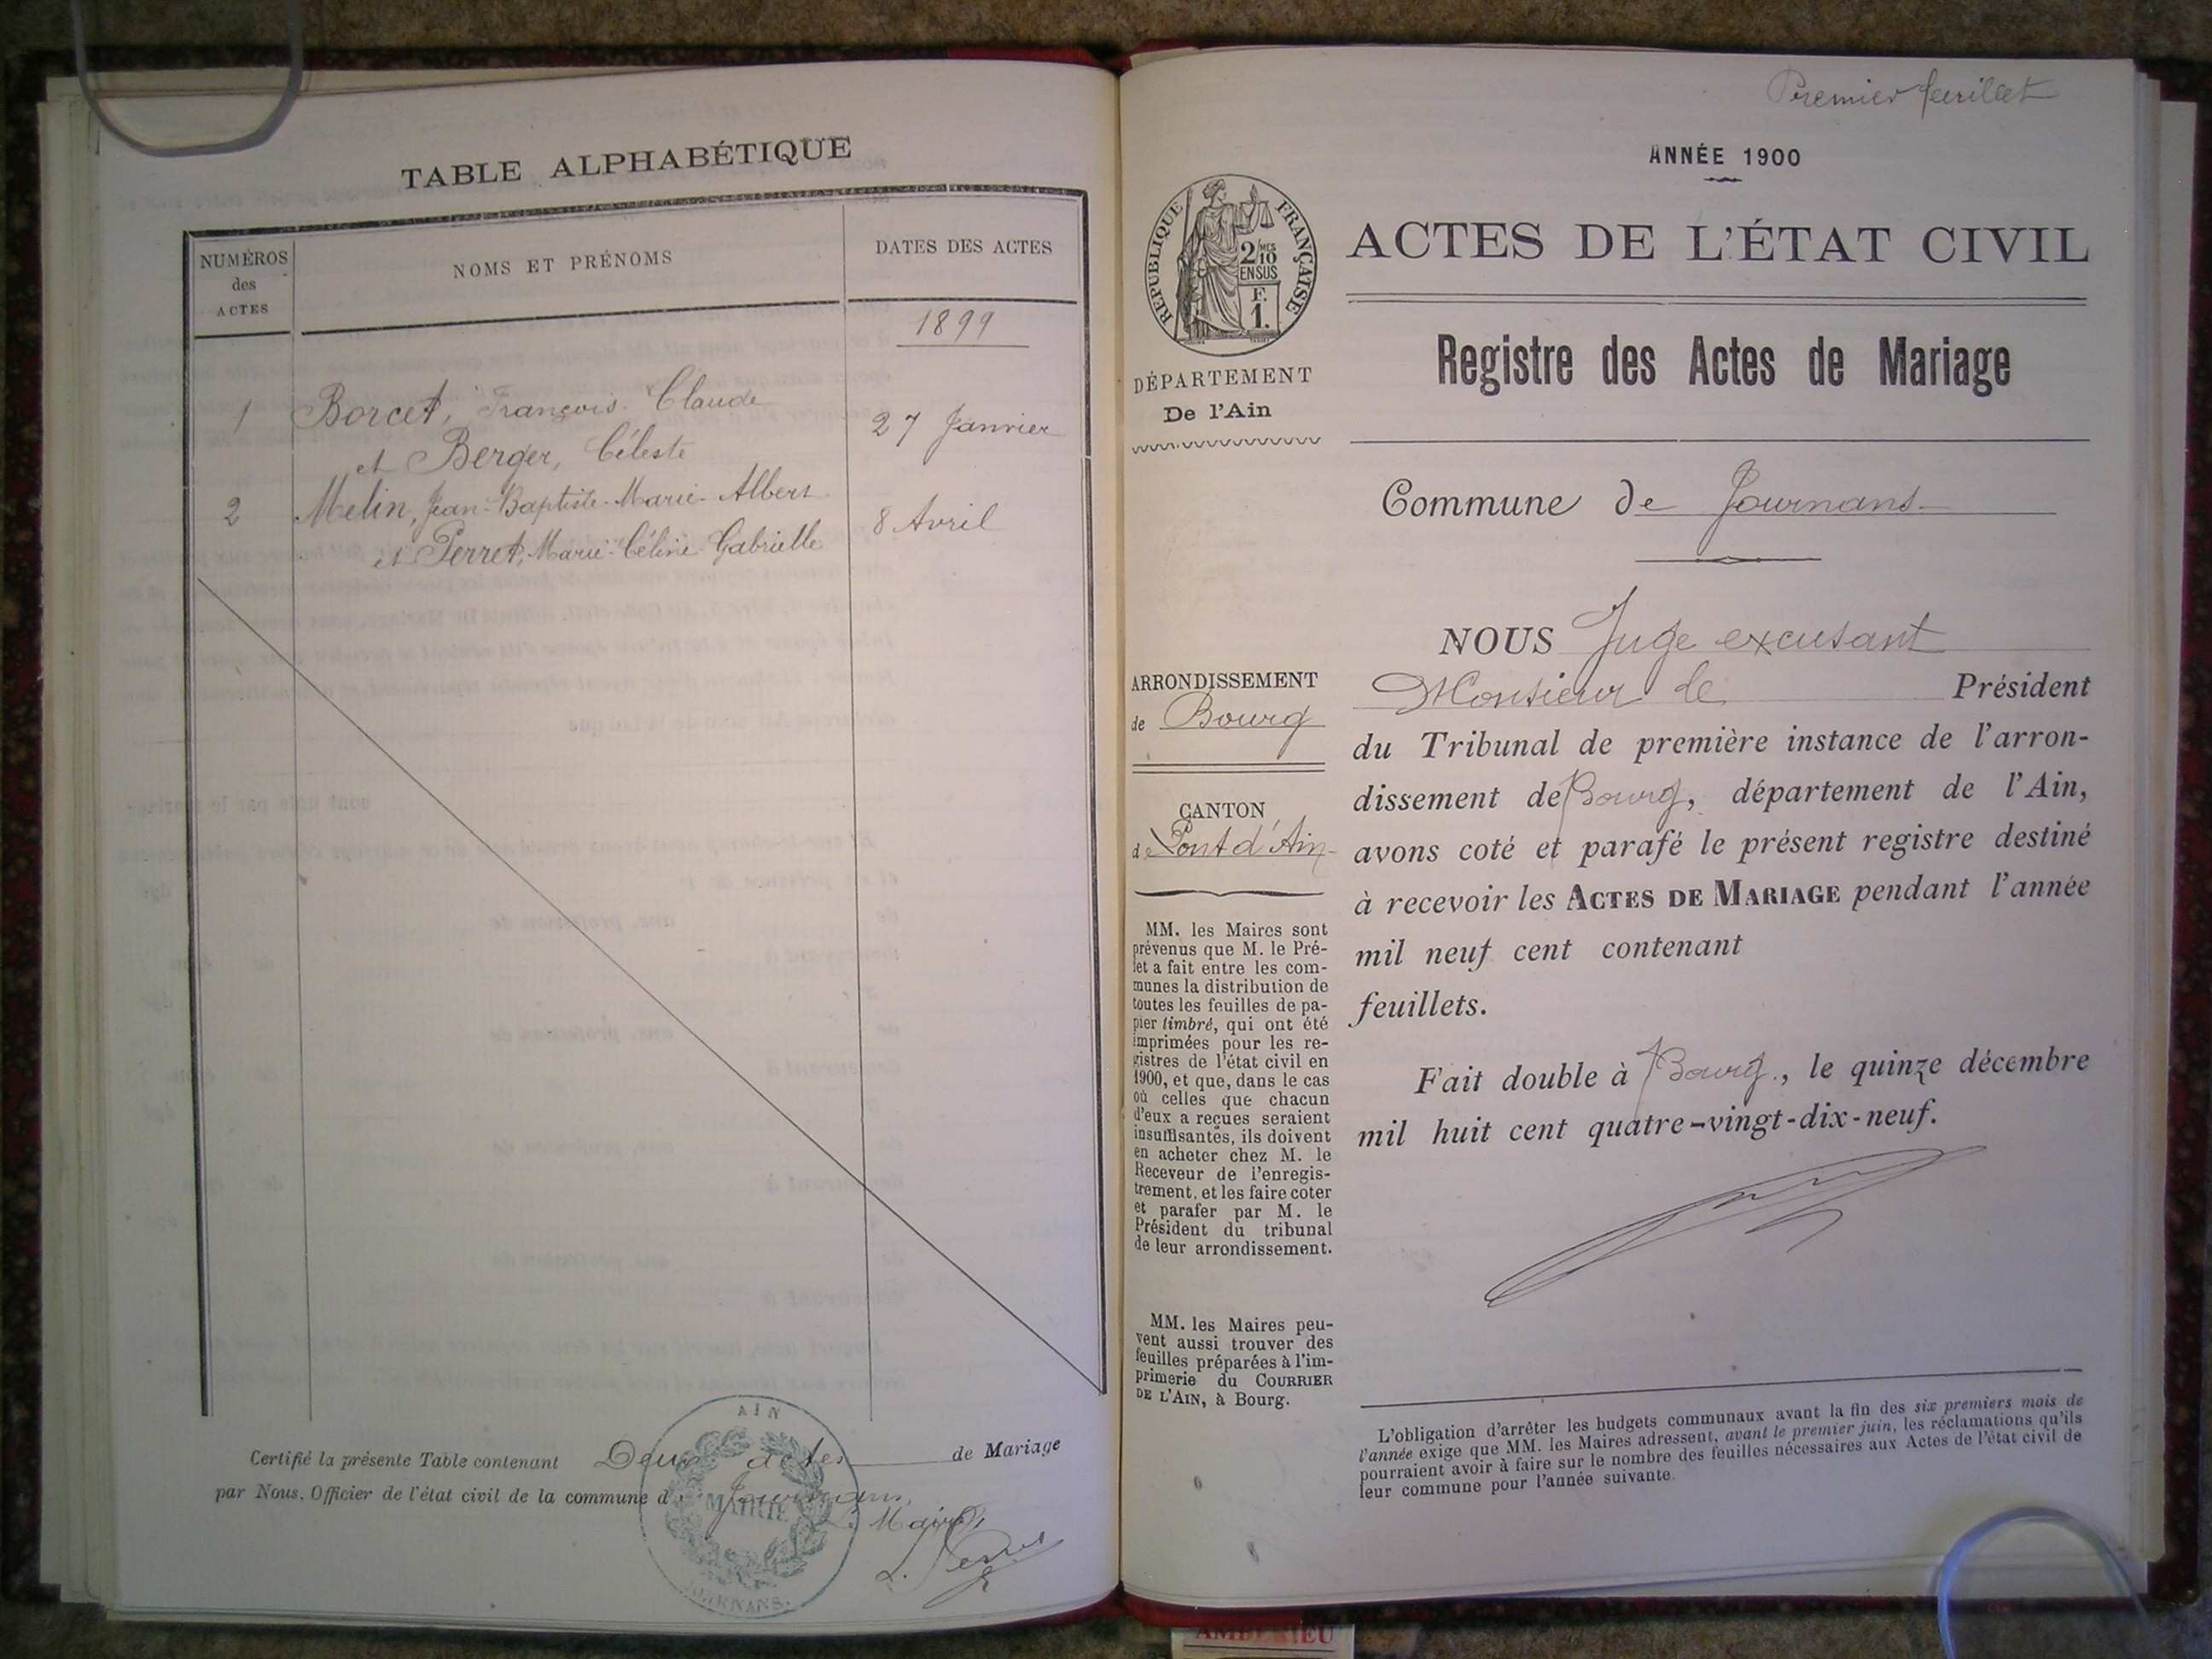 TABLE ALPHABÉTIQUE
NUMÉROS
des
ACTES
NOMS ET PRÉNOMS
DATES DES ACTES
1899
1 Borcet, François-Claude
et Berger, Céleste
27 Janvier
2 Melin, Jean-Baptiste-Marie-Albert
et Perret, Marie-Céline-Gabrielle
8 Avril
Certifié la présente Table contenant Deux actes de Mariage
par Nous, Officier de l'état civil de la commune de Journans,
Le Maire,
AIN
MAIRIE
JOURNANS
Premier feuillet
ANNÉE 1900
RÉPUBLIQUE FRANÇAISE
2/10
MES
EN SUS
F.
1.
ACTES DE L'ÉTAT CIVIL
Registre des Actes de Mariage
DÉPARTEMENT
De l'Ain
Commune de Journans
NOUS Juge excusant
Monsieur le Président
du Tribunal de première instance de l'arron-
dissement de Bourg, département de l'Ain,
avons coté et parafé le présent registre destiné
à recevoir les ACTES DE MARIAGE pendant l'année
mil neuf cent contenant
feuillets.
Fait double à Bourg, le quinze décembre
mil huit cent quatre-vingt-dix-neuf.
ARRONDISSEMENT
de Bourg
CANTON
de Pont d'Ain
MM. les Maires sont
prévenus que M. le Pré-
fet a fait entre les com-
munes la distribution de
toutes les feuilles de pa-
pier timbré, qui ont été
imprimées pour les re-
gistres de l'état civil en
1900, et que, dans le cas
où celles que chacun
d'eux a reçues seraient
insuffisantes, ils doivent
en acheter chez M. le
Receveur de l'enregis-
trement, et les faire coter
et parafer par M. le
Président du tribunal
de leur arrondissement.
MM. les Maires peu-
vent aussi trouver des
feuilles préparées à l'im-
primerie du COURRIER
DE L'AIN, à Bourg.
L'obligation d'arrêter les budgets communaux avant la fin des six premiers mois de
l'année exige que MM. les Maires adressent, avant le premier juin, les réclamations qu'ils
pourraient avoir à faire sur le nombre des feuilles nécessaires aux Actes de l'état civil de
leur commune pour l'année suivante.